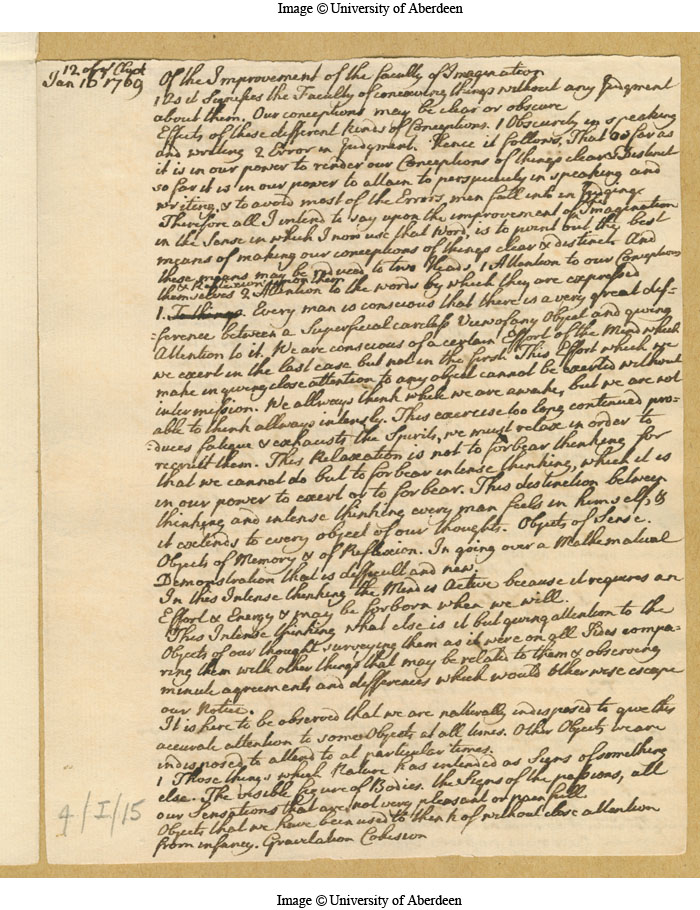 Image © University of Aberdeen
12 of yͤ Chapt
Jan 16 1769
Of the Improvement of the faculty of Imagination
1 As it signifies the Faculty of conceiving things without any Judgment
about them. Our conceptions may be clear or obscure
Effects of these different kinds of Conceptions. 1 Obscurity in speaking
and writing 2 Error in Judgment. Hence it follows, That so far as
it is in our power to render our Conceptions of things clear & Distinct
so far it is in our power to attain to perspicuity in speaking and
writing, & to avoid most of the Errors men fall into in Judging
Therefore all I intend to say upon the improvement of Imagination
in the Sense in which I now use that Word, is to point out the best
means of making our conceptions of things clear & distinct And
these means may be reduced to two Heads, 1 Attention to our Conceptions
& Reflexion upon them
themselves 2 Attention to the words by which they are expressed
1. To things. Every man is conscious that there is a very great dif-
-ference between a Superficial careless View of any Object and giving
Attention to it. We are conscious of a certain Effort of the Mind which
we exert in the last case but not in the first. This Effort which we
make in giving close attention to any object cannot be exerted without
intermission. We allways think while we are awake, but we are not
able to think allways intensly. This exercise too long continued pro-
-duces fatigue & exhausts the Spirits, we must relax in order to
recruit them. This Relaxation is not to forbear thinking for
that we cannot do but to forbear intense thinking, which it is
in our power to exert or to forbear. This distinction between
thinking and intense thinking every man feels in himself, &
it extends to every object of our thoughts. Objects of Sense.
Objects of Memory & of Reflexion. In going over a Mathematical
Demonstration that is difficult and new.
In this Intense thinking the Mind is Active because it requires an
Effort & Energy & may be forborn when we will.
This Intense thinking what else is it but giving attention to the
Objects of our thought surveying them as it were on all Sides compa-
ring them with other things that may be related to them & observing
minute agreements and differences which would otherwise escape
our Notice.
It is here to be observed that we are naturally indisposed to give this
accurate attention to some Objects at all times. Other Objects we are
indisposed to attend to at particular times.
1 Those things which Nature has intended as Signs of something
else. The visible figure of Bodies. the Signs of the passions, all
our Sensations that are not very pleasant or painfull.
Objects that we have been used to think of without close attention
from infancy. Gravitation Cohesion
4/I/15
Image © University of Aberdeen